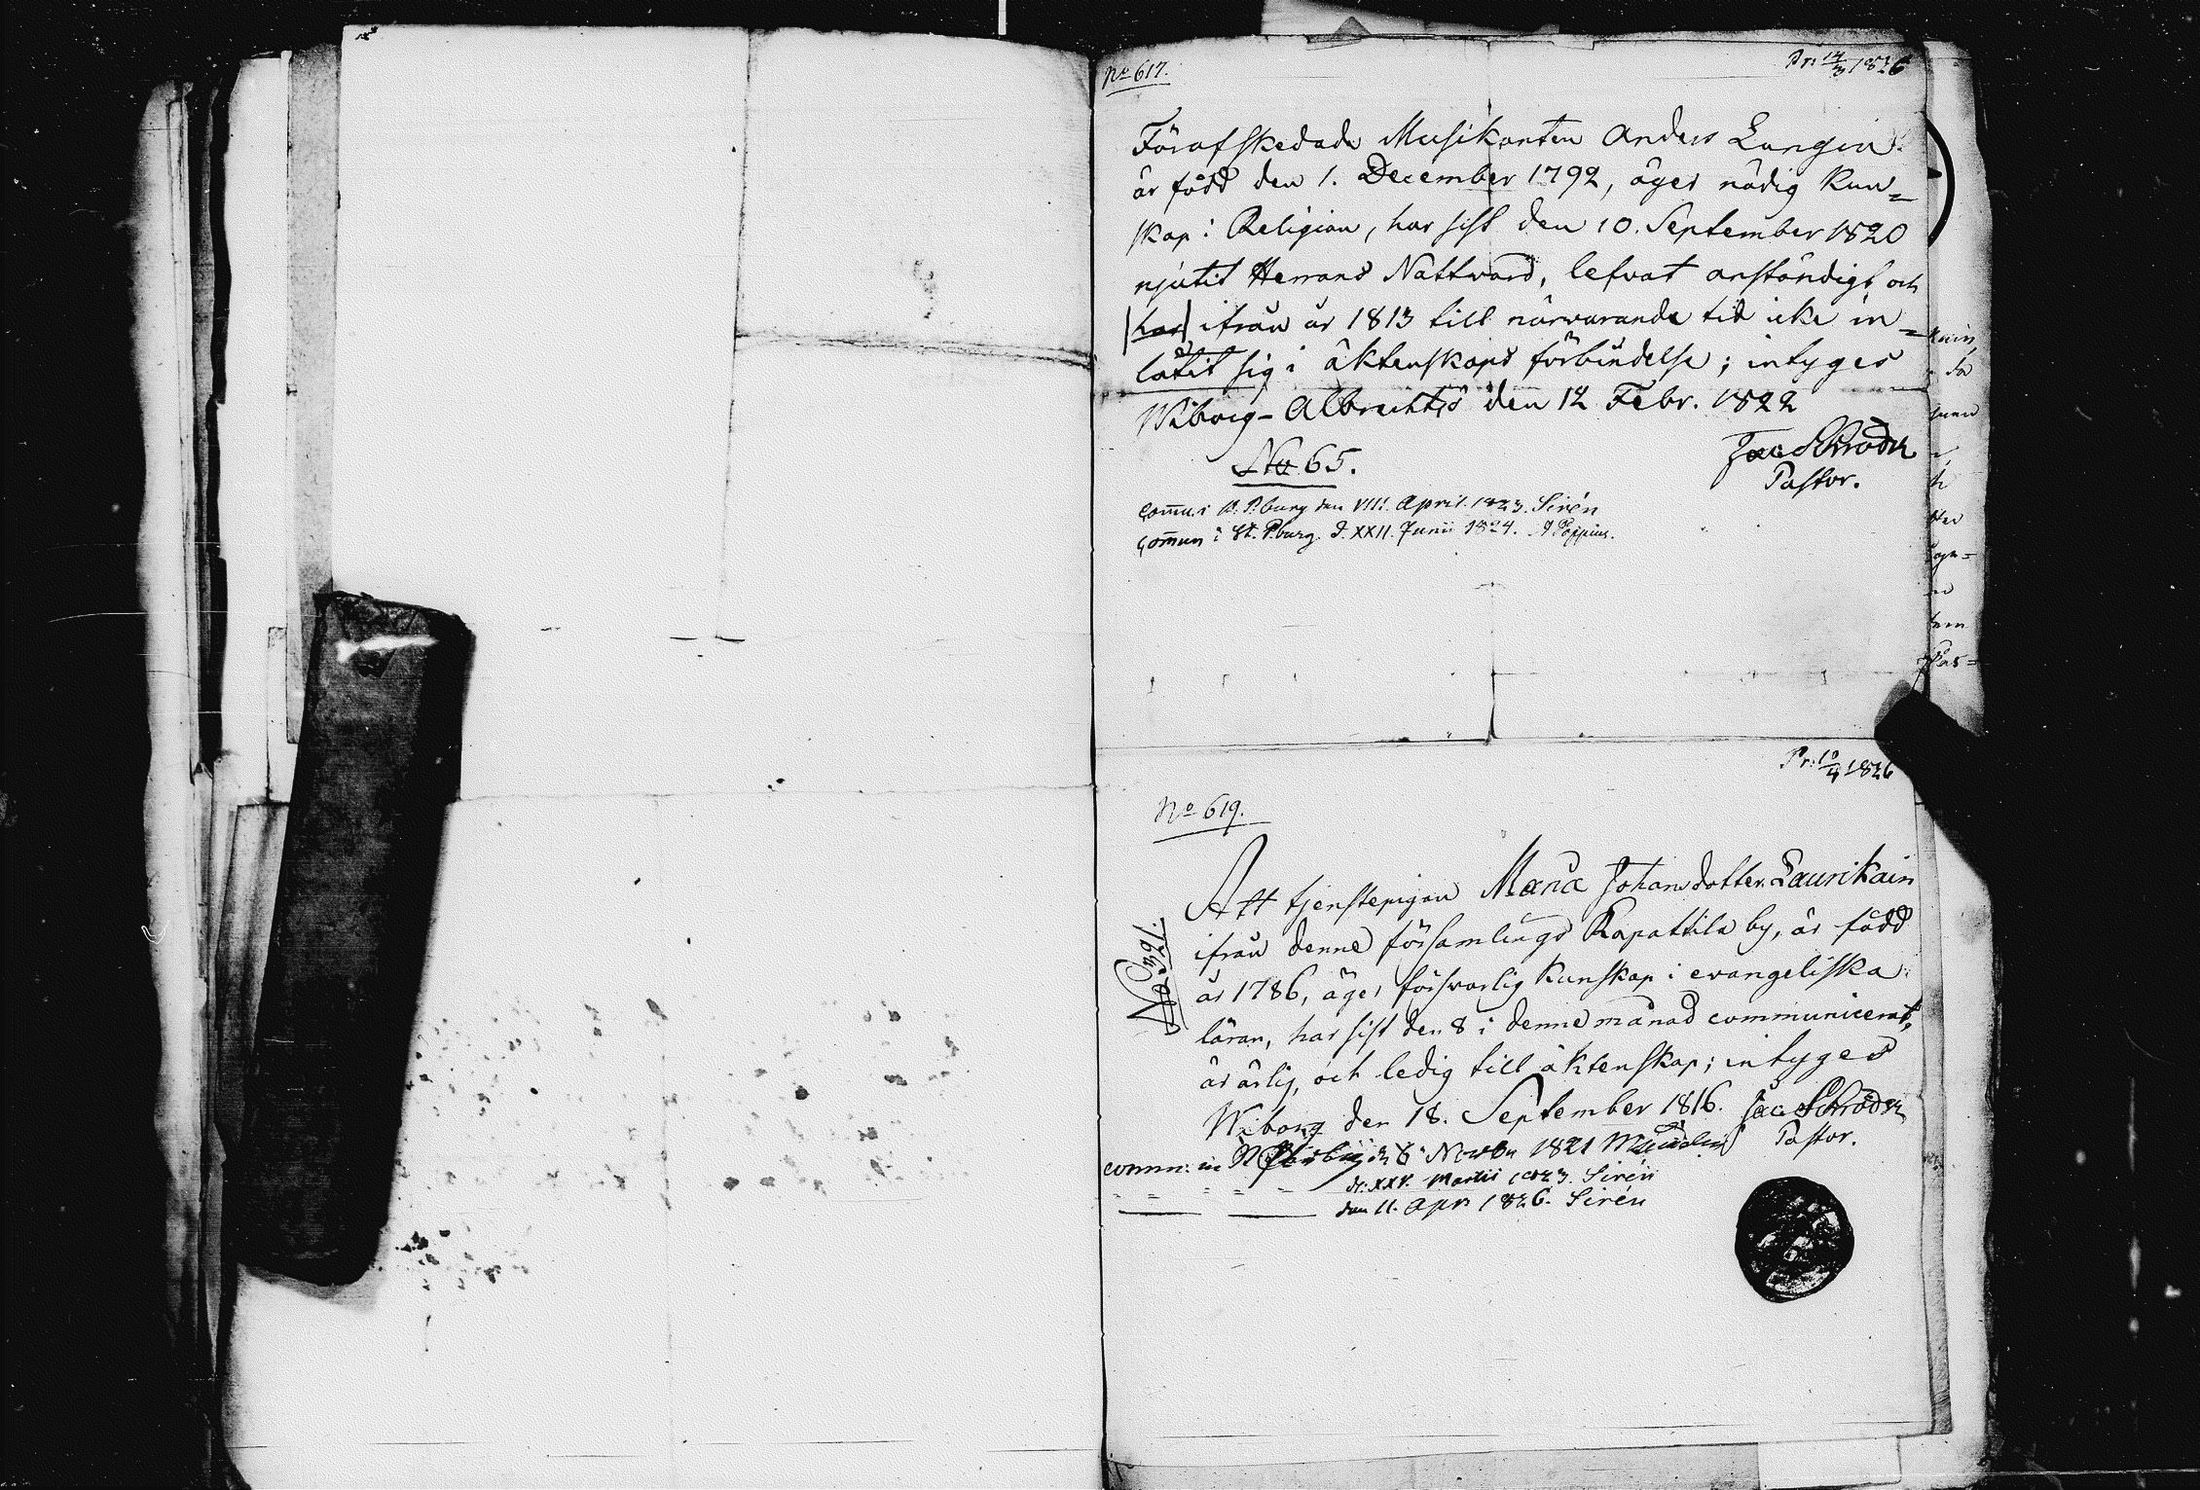 No 617.
Pr: 14/3 1826
Förafskedade Musikanten Anders Langin
är född den 1. December 1792, äger nödig kun=
skap i Religion, har sist den 10. September 1820
njutit Herrans Nattvard, lefvat anständigt och
har ifrån år 1813 till närvarande tid icke in=
låtit sig i äktenskaps förbindelse; intyges
Wiborg - den 12 Febr. 1822
No 65.
Jac Schröder
Pastor.
Comu. i P.burg den VIII. April. 1823. Sirén
Comun i St. P.burg. d. XXII. Junii 1824. Poppius.
Pr: 10/4 1826
No 619.
No 31.
Att tjenstepigan Maria Johansdotter Laurikain
ifrån denne församlings Kapattila by, är född
år 1786, äger försvarlig kunskap i evangeliska
läran, har sist den 8 i denne månad communicerat,
är ärlig, och ledig till äktenskap; intyges
Wiborg den 18. September 1816. Jac Schröder
Pastor.
comm: in 1821
d. XXV. Martii 1823. Sirén
den 11. Apr. 1826. Sirén